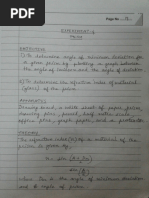 Page No. 19
EXPERIMENT-4
PRISM
OBJECTIVE
(i) To determine angle of minimum deviation for
a given prism by plotting a graph between
the angle of incidence and the angle of deviation.
(ii) To determine the refractive index of material
(glass) of the prism.
APPARATUS
Drawing board, a white sheet of paper, prism,
drawing pins, pencil, half metre scale, office
pins, graph paper, and a protractor.
THEORY
The refractive index (μ) of the material of
prism is
sin
sin
where, Dm is the angle of minimum deviation
and A angle of prism.